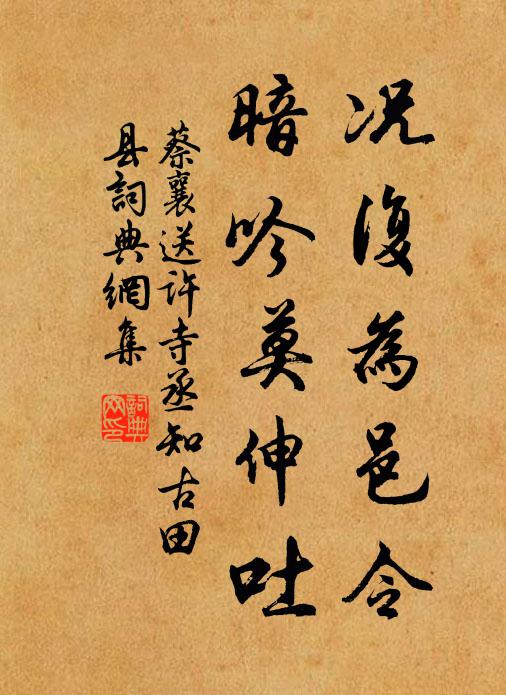 况復為邑令
暗吟莫伸吐
蔡襄送許寺丞知古田
县詞典網集
詞典
网印